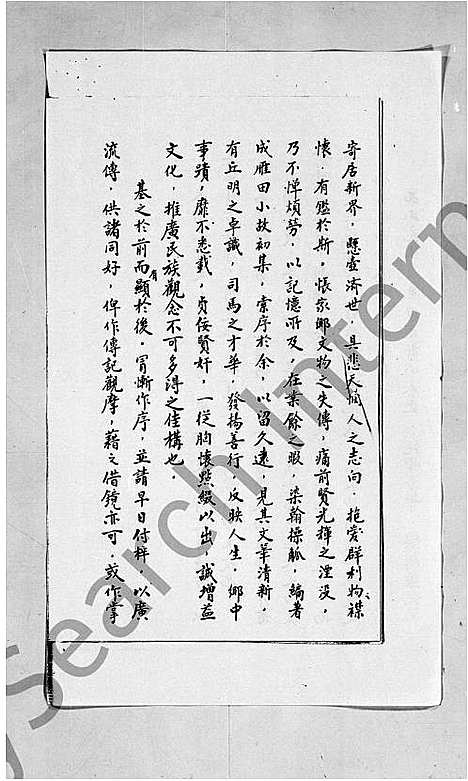 寄居新界，懸壺濟世，具悲天憫人之志向，抱愛群利物襟
懷．有鑑於斯，悵家鄉文物之失傳，痛前賢光輝之湮没，
乃不憚煩勞，以記憶所及，在業餘之暇，染翰操觚，編著
成雁田小故初集，索序於余，以留久遠，見其文筆清新，
有丘明之卓識，司馬之才華，發揚善行，反映人生，鄉中
事蹟，靡不悉載，貞佞賢奸，一從胸懷點綴以出，誠增益
文化，推廣民族觀念不可多得之佳構也。
基之於前而有顯於後，冒慚作序，並請早日付梓，以廣
流傳，供諸同好，俾作傳記觀摩，藉之借鏡亦可，或作掌
Search Intern